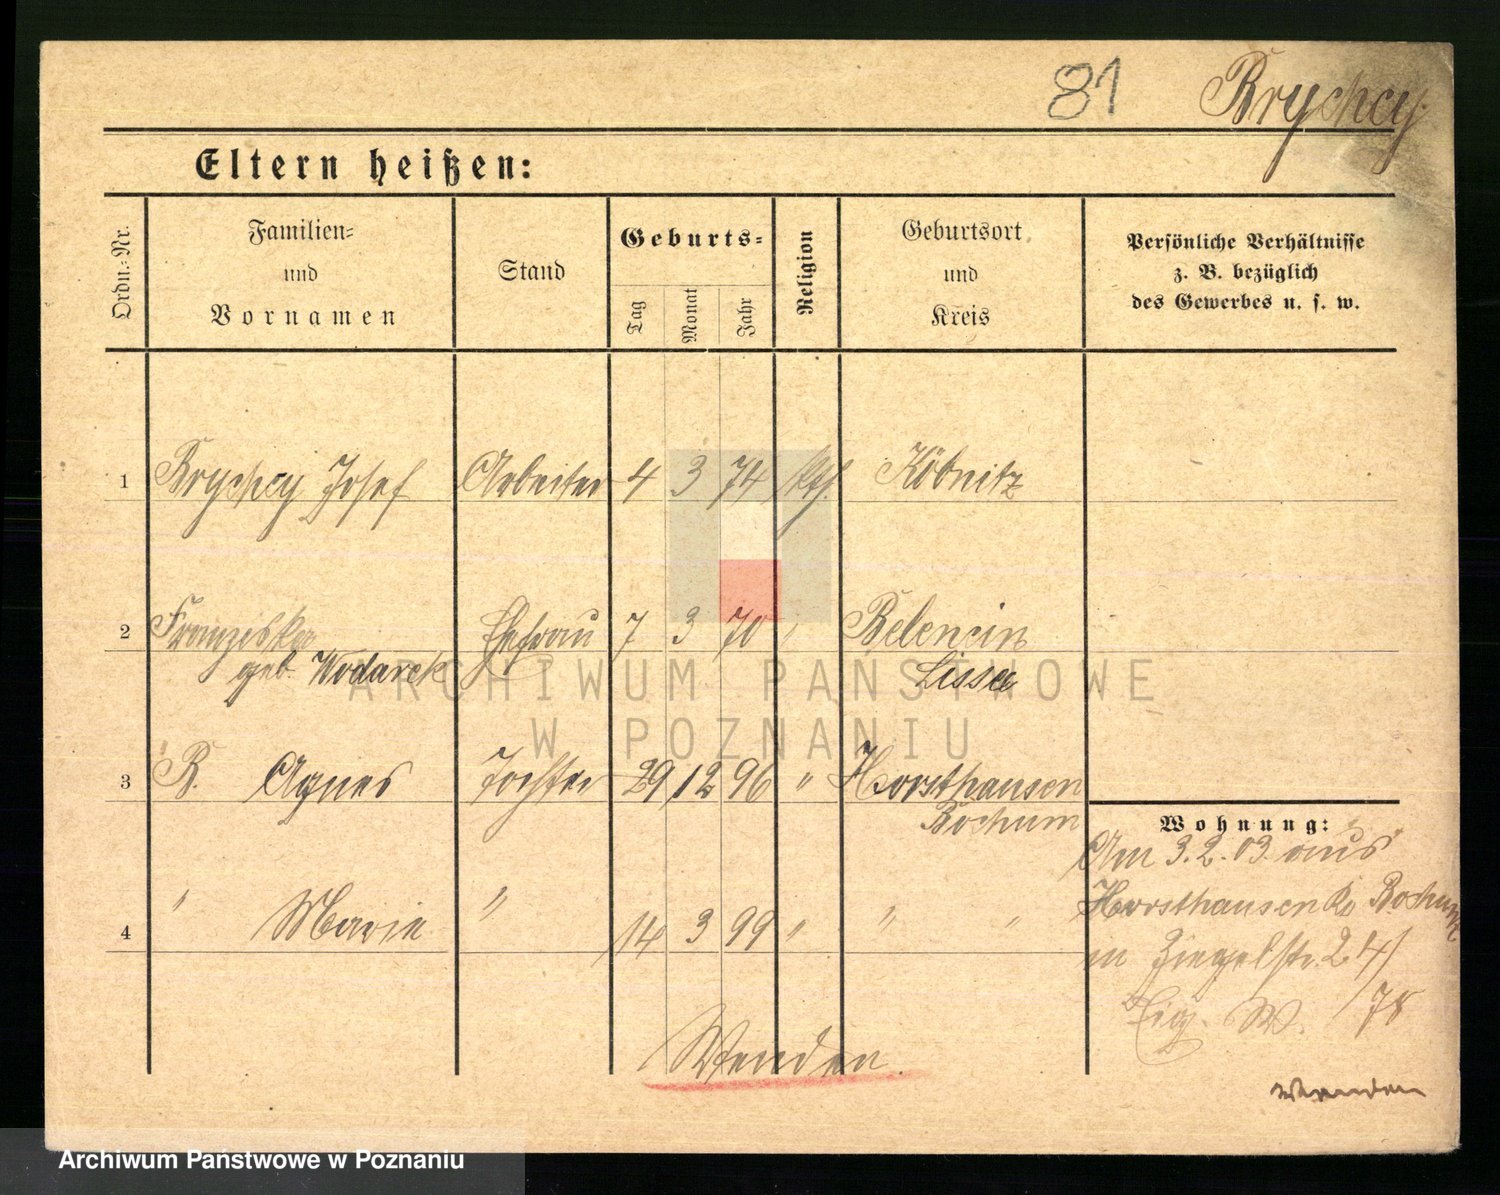 81 Brychcy.
Eltern heißen:
Ordn.-Nr.
Familien-
und
Vornamen
Stand
Geburts-
Tag
Monat
Jahr
Religion
Geburtsort
und
Kreis
Persönliche Verhältnisse
z. B. bezüglich
des Gewerbes u. s. w.
1 Brychcy Josef Arbeiter 4 3 74 kth. Köbnitz
2 Franziska Ehefrau 7 3 70 " Belencin
geb. Wodarek Lissa
3 B. Agnes Tochter 29 12 96 " Horsthausen
Bochum
4 " Marie " 14 3 99 " " "
Wohnung:
Am 3.2.03. aus
Horsthausen Kr. Bochum
in Ziegelstr. 24/
Eig. W. /78
Wenden.
Wenden
ARCHIWUM PAŃSTWOWE
W POZNANIU
Archiwum Państwowe w Poznaniu